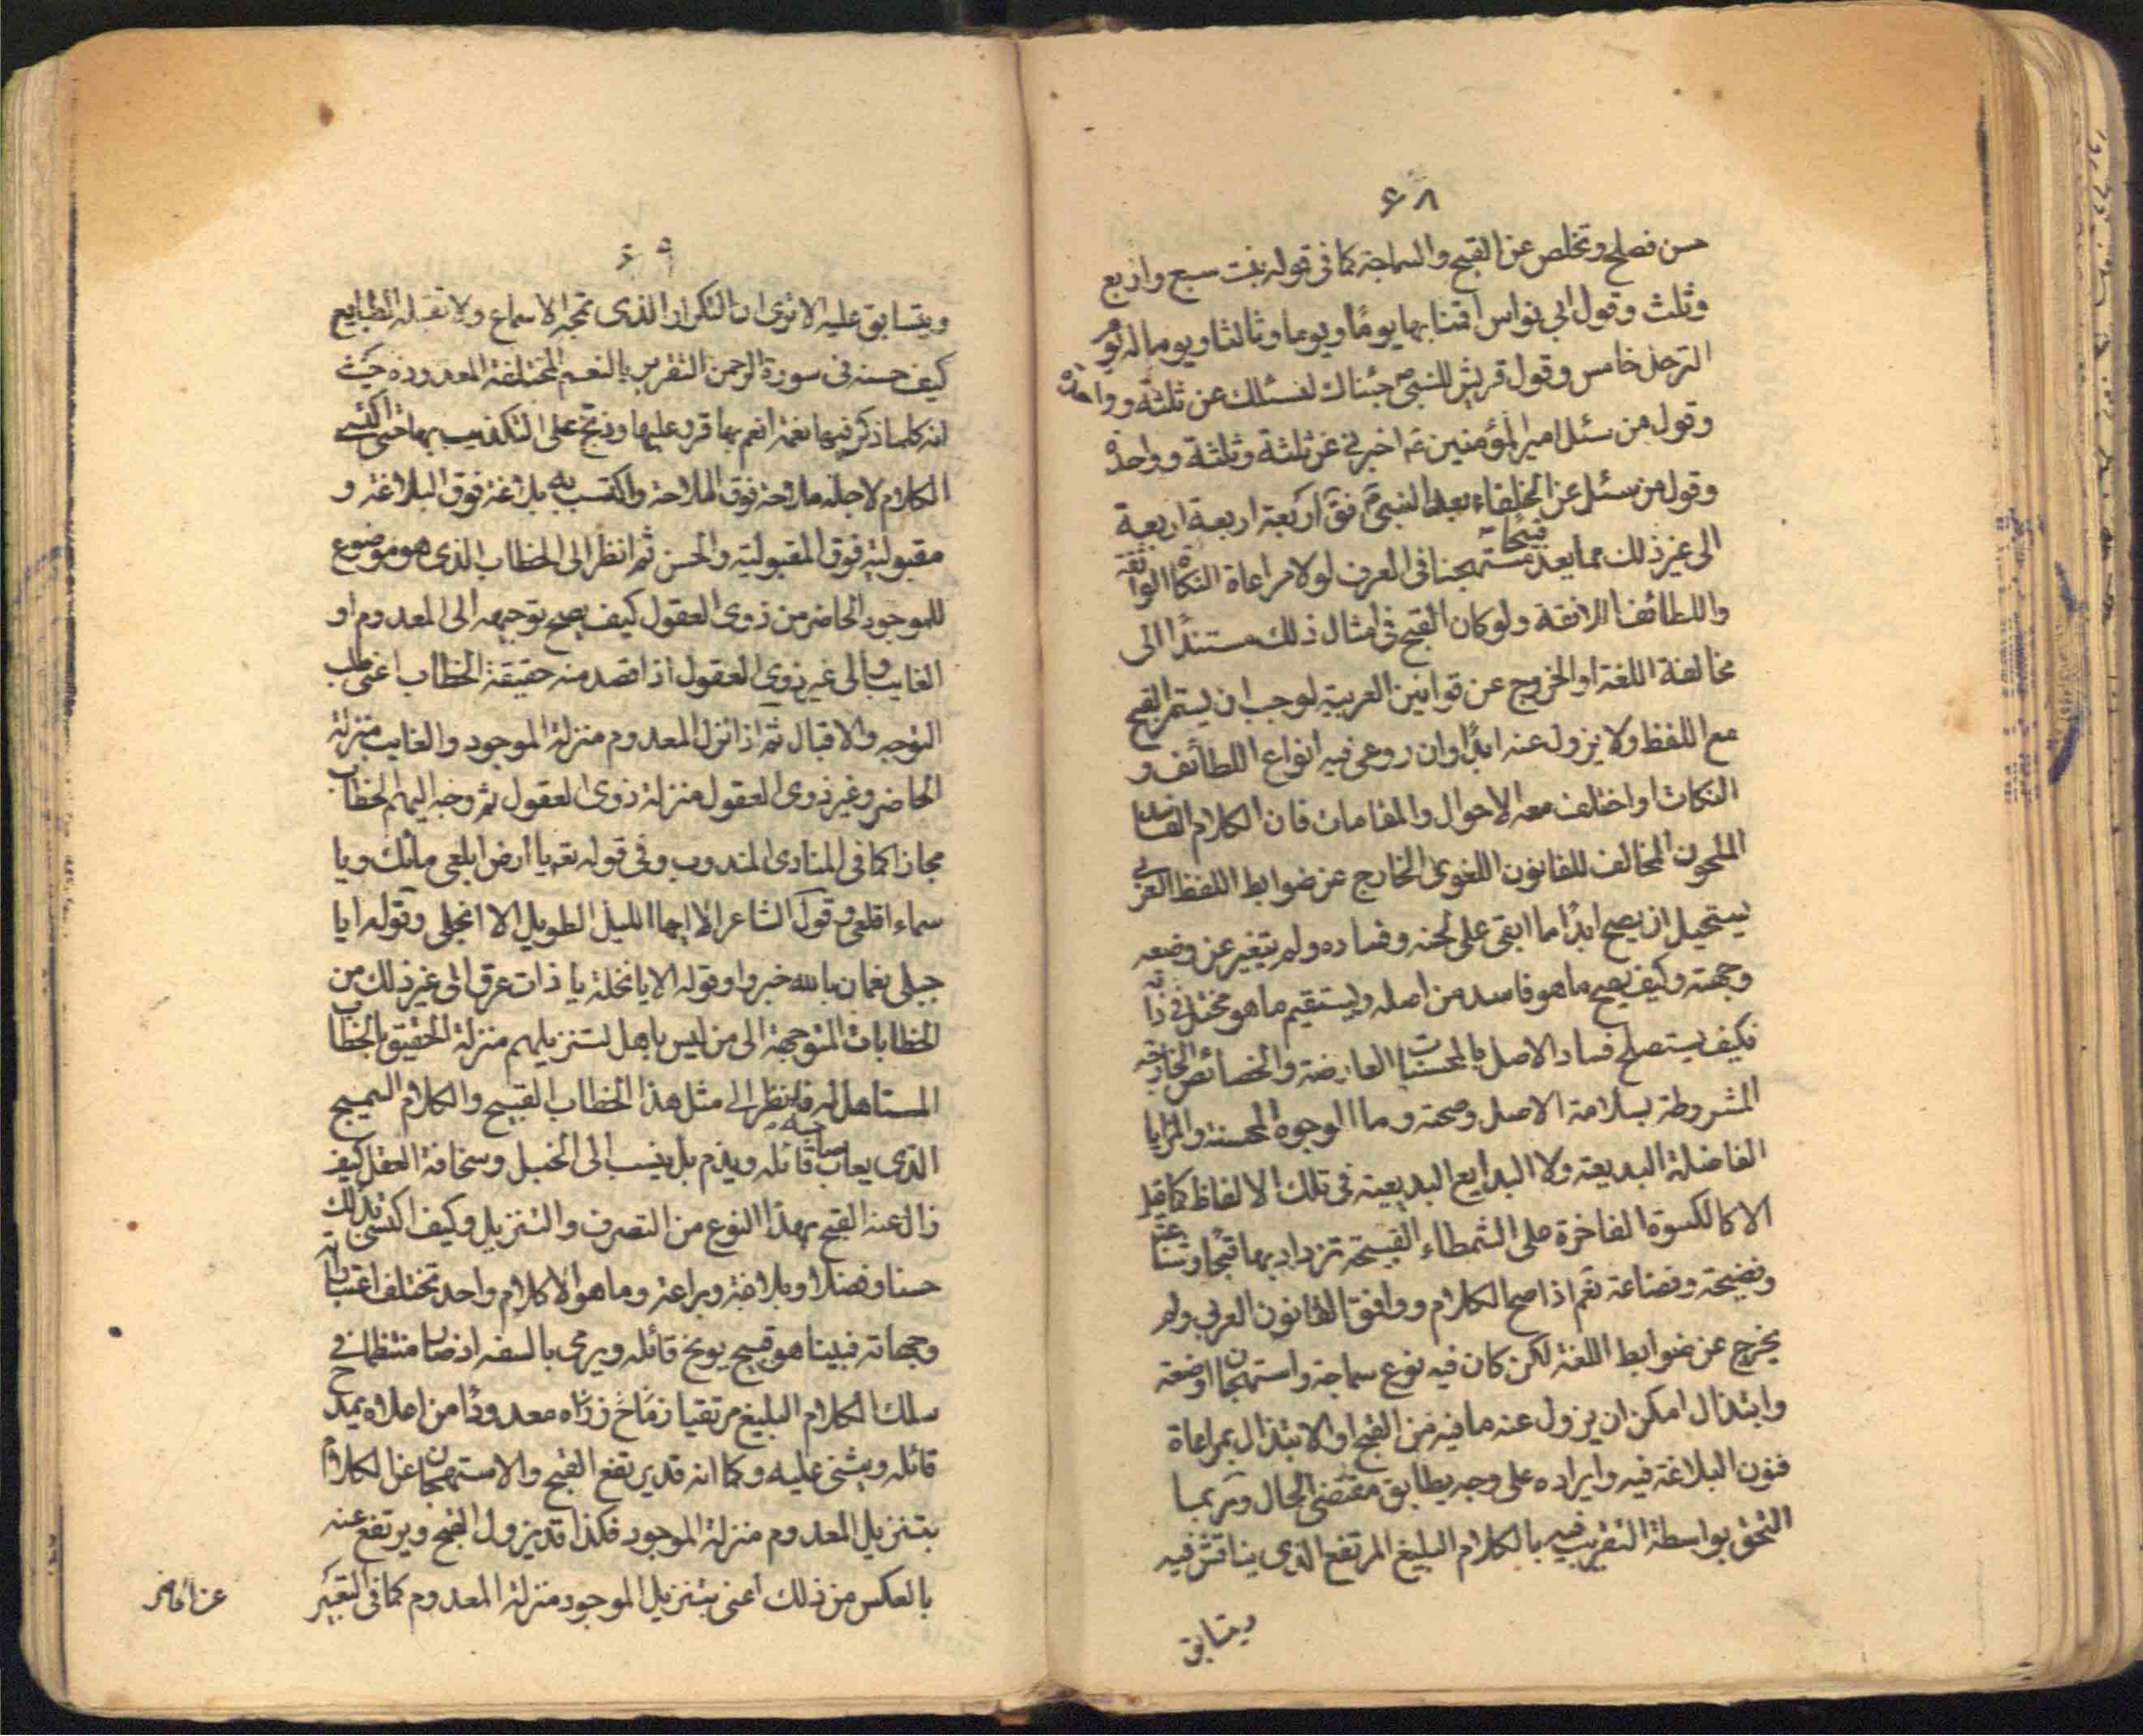 ۶۸
حسن فصلح وتخلص عن القبح والسماجة كما فى قوله بنت سبع واربع
وثلث وقول ابي نواس اقمنا بها يومًا ويوما وثالثا ويوما له يوم
الترحل خامس وقول قريش للنبى جئناك لنسئلك عن ثلثة وواحدة
وقول من سئل امير المؤمنين ع اخبرنى عن ثلثة وثلثة وواحدة
وقول من سئل عن الخلفاء بعد النبى ص فق اربعة اربعة اربعة
الى غير ذلك مما يعد قبيحًا مستهجنا فى العرف لولا مراعاة النكاة الواثقة
واللطائف الرائقة ولو كان القبح فى امثال ذلك مستندًا الى
مخالفة اللغة او الخروج عن قوانين العربية لوجب ان يستمر القبح
مع اللفظ ولا يزول عنه ابدًا وان روعى فيه انواع اللطائف و
النكات او اختلف معه الاحوال والمقامات فان الكلام الفاسد
الملحون المخالف للقانون اللغوى الخارج عن ضوابط اللفظ العربى
يستحيل ان يصح ابدًا ما ابقى على لحنه وفساده ولم يتغير عن وضعه
وجهته وكيف يصح ما هو فاسد من اصله ويستقيم ما هو مختل فى ذاته
فكيف يستصلح فساد الاصل بالمحسنات العارضة والخصائص الخارجة
المشروطة بسلامة الاصل وصحته وما الوجوه المحسنة والمزايا
الفاضلة البديعة ولا البدايع البديعية فى تلك الالفاظ كما قيل
الا كالكسوة الفاخرة على الشمطاء القبيحة تزداد بها قبحًا وشناعة
وفضيحة وفضاعة نعم اذا صح الكلام ووافق القانون العربى ولم
يخرج عن ضوابط اللغة لكن كان فيه نوع سماجة واستهجان اوضعة
وابتذال امكن ان يزول عنه ما فيه من القبح او الابتذال بمراعاة
فنون البلاغة فيه وايراده على وجه يطابق مقتضى الحال وربما
التحق بواسطة التقريب فيه بالكلام البليغ المرتفع الذى يناقش فيه
ويتسابق
۶۹
ويتسابق عليه الا ترى ان التكرار الذى تمجه الاسماع ولا تقبله الطبايع
كيف حسنه فى سورة الرحمن التقرير بالنعم المختلفة المعدودة حيث
انه كلما ذكر فيها نعمة انعم بها قرر عليها ووبخ على التكذيب بها حتى اكتسى
الكلام لاجله ملاحة فوق الملاحة واكتسب به بلاغة فوق البلاغة و
مقبولية فوق المقبولية والحسن ثم انظر الى الخطاب الذى هو موضوع
للموجود الحاضر من ذوى العقول كيف يصح توجيهه الى المعدوم او
الغايب والى غير ذوى العقول اذا قصد منه حقيقة الخطاب اعنى طلب
التوجه والاقبال ثم اذا نزل المعدوم منزلة الموجود والغايب منزلة
الحاضر وغير ذوى العقول منزلة ذوى العقول ثم وجه اليهم الخطاب
مجازا كما فى المنادى المندوب وفى قوله تعم يا ارض ابلعى ماءك ويا
سماء اقلعى وقول الشاعر الا ايها الليل الطويل الا انجلى وقوله ايا
جبلى نعمان بالله خبروا وقوله الا يا نخلة يا ذات عرق الى غير ذلك من
الخطابات المتوجهة الى من ليس باهل لتنزيلهم منزلة الحقيق بالخطاب
المستاهل له فانظر الى مثل هذا الخطاب القبيح والكلام السميج
الذى يعاب صاحبه قائله ويذم بل ينسب الى الخبل وسخافة العقل كيف
زال عنه القبح بهذا النوع من التصرف والتنزيل وكيف اكتسى بذلك
حسنا وفضلا وبلاغة وبراعة وما هو الا كلام واحد تختلف اعتباراته
وجهاته فبينا هو قبيح يوبخ قائله ويرمى بالسفه اذ صار منتظما فى
سلك الكلام البليغ مرتقيا زمّاخ ذراه معدودًا من اعلاه يمدح
قائله ويثنى عليه وكما انه قد يرتفع القبح والاستهجان عن الكلام
بتنزيل المعدوم منزلة الموجود فكذا قد يزول القبح ويرتفع عنه
بالعكس من ذلك اعنى بتنزيل الموجود منزلة المعدوم كما فى التعبير